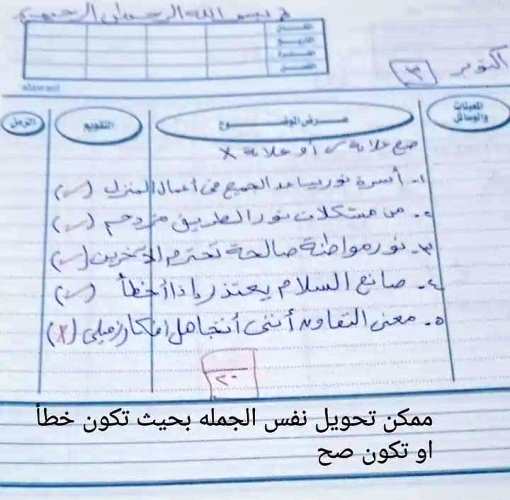 بسم الله الرحمن الرحيم
أكتوبر (٣)
المعينات والوسائل
عرض الموضوع
التقويم
الزمن
ضع علامة ✓ أو علامة X
١. أسرة نور يساعد الجميع في أعمال المنزل (✓)
٢. من مشكلات نور الطريق مزدحم (✓)
٣. نور مواطنة صالحة تحترم الآخرين (✓)
٤. صانع السلام يعتذر إذا أخطأ (✓)
٥. معنى التعاون أنني أتجاهل أفكار زميلي (X)
٢٠
ممكن تحويل نفس الجمله بحيث تكون خطأ
او تكون صح